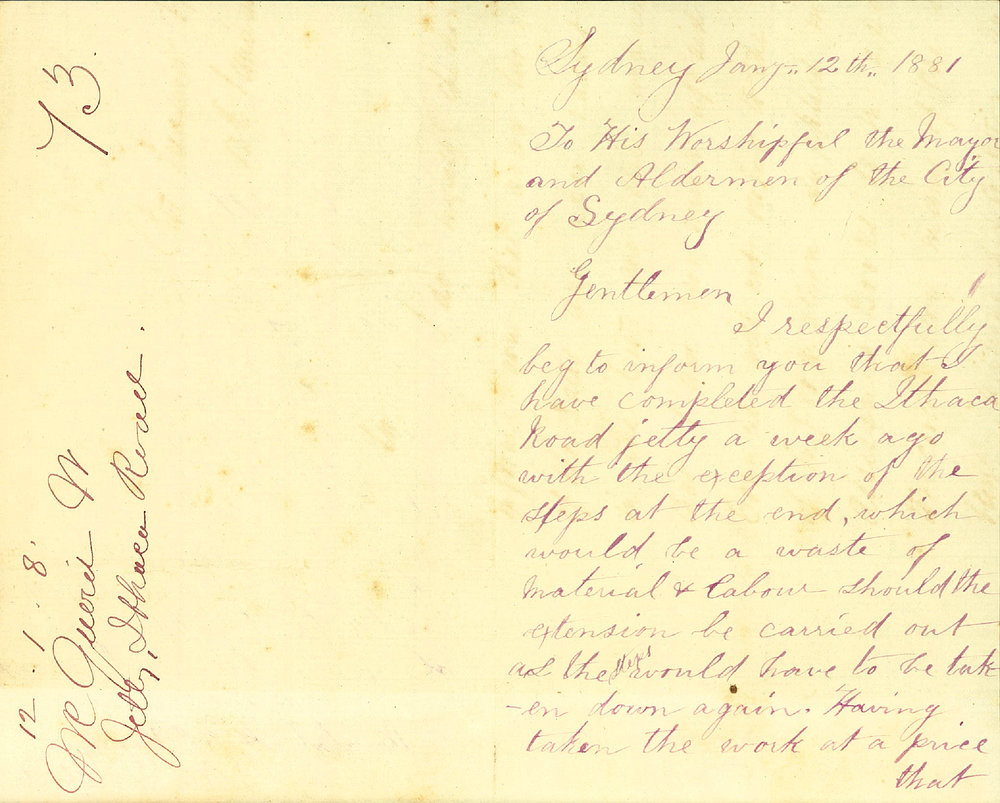 73.
12 . 1 . 8
Jetty, Ithaca Road.
Sydney Jany 12th 1881
To His Worshipful the Mayor
and Aldermen of the City
of Sydney
Gentlemen
I respectfully
beg to inform you that I
have completed the Ithaca
Road jetty a week ago
with the exception of the
steps at the end, which
would be a waste of
material & labour should the
extension be carried out
as the steps would have to be tak
-en down again. Having
taken the work at a price
that